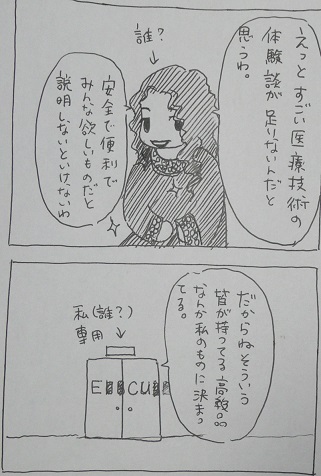 えっと すごい医療技術の
体験談が 足りないんだと
思うわ。
誰?
安全で便利で
みんな欲しいものだと
説明しないといけないわ
だからね そういう
皆が持ってる 高級品
なんか私のものに決まっ
てる。
私(誰?)
専用